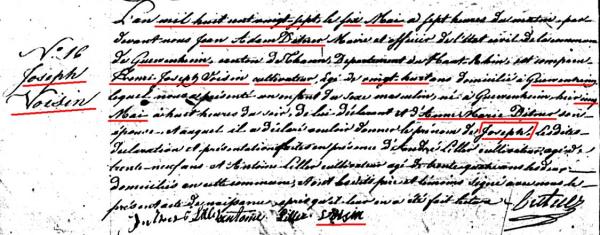 N° 16
Joseph
Voisin
L'an mil huit cent vingt sept le six Mai a sept heures du matin, par
devant nous Jean Adam Ditner Maire et officier de l'état civil de la commune
de Guewenheim, canton de Thann, Département du Haut Rhin, est comparu
Henri Joseph Voisin cultivateur, agé de vingt huit ans domicilié a Guewenheim
lequel nous a présenté un enfant du sexe masculin, né a Guewenheim hier cinq
Mai a huit heures du soir, de lui déclarant et d'Anne Marie Ditner son
épouse. Auquel il a déclaré vouloir donner le prénom de Joseph. Lesdites
déclaration et présentation faites en présence de André Liller cultivateur, agé de
trente neuf ans et Antoine Liller cultivateur agé de trente quatre ans tous deux
domiciliés en cette commune, et ont lesdits père et témoins signé avec nous le
présent acte de naissance après qu'il leur en a été fait lecture
Andres Liller antoine Liller voisin